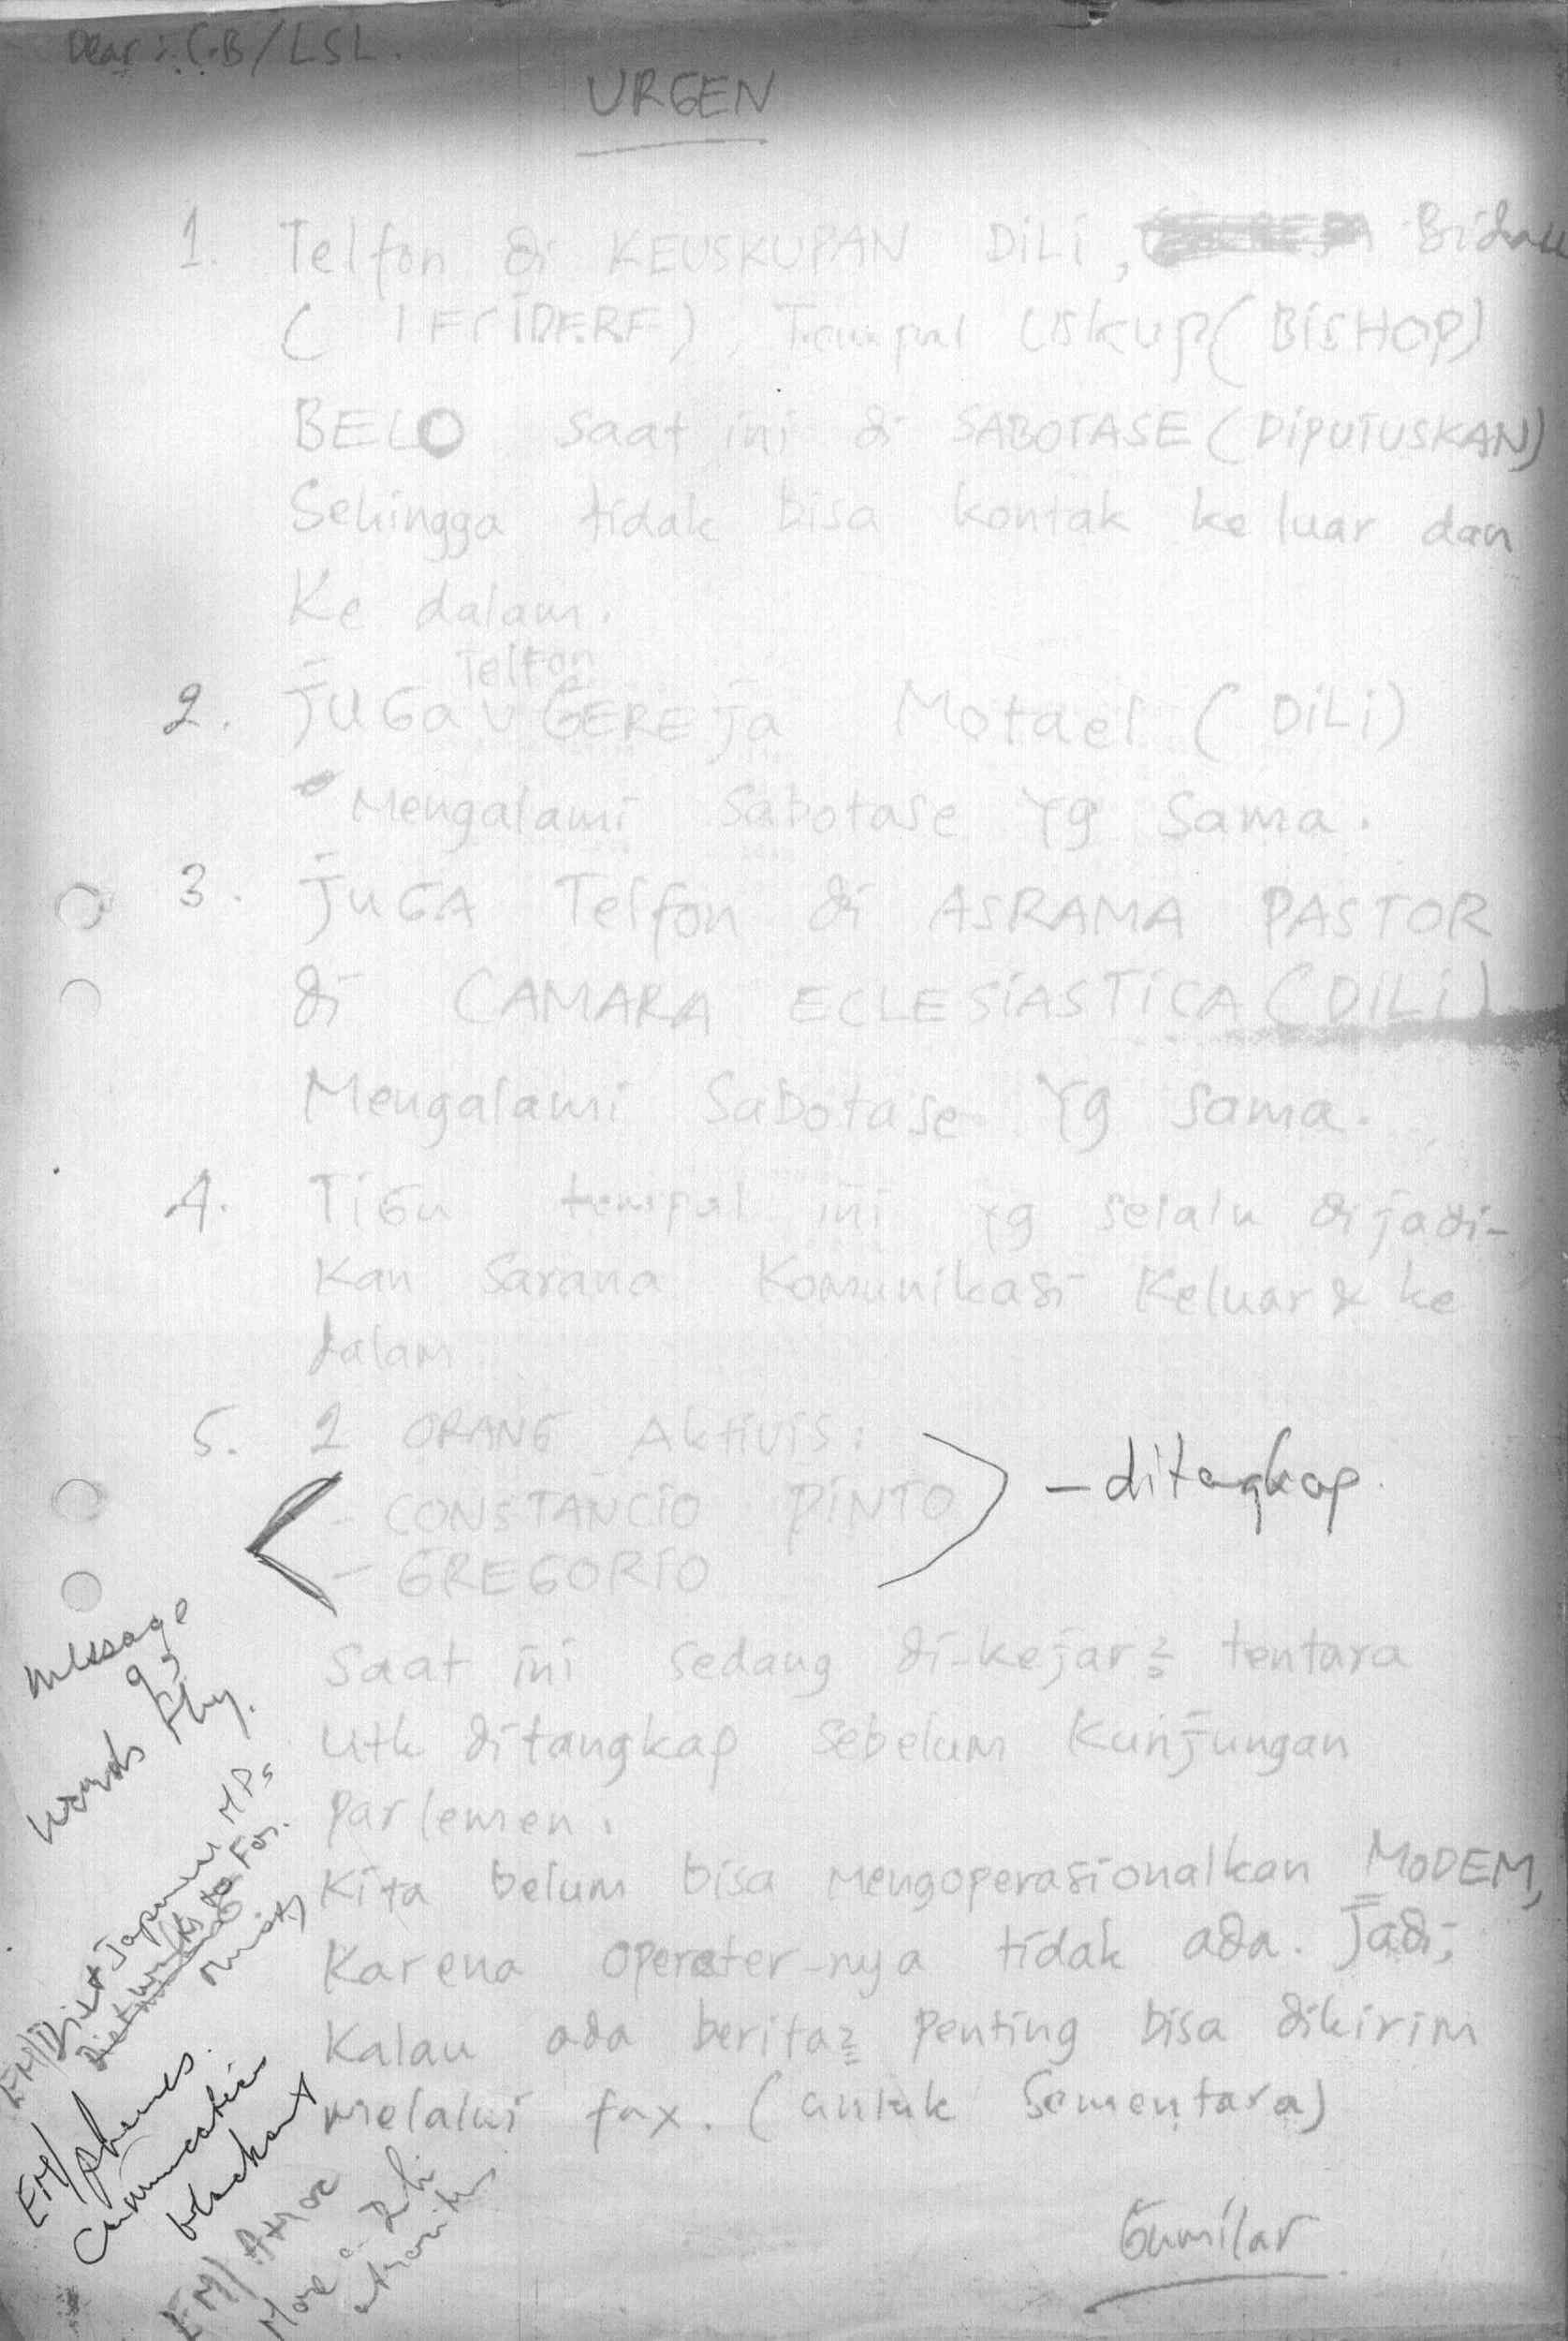 Dear : C.B/LSL.
URGEN
1. Telfon di KEUSKUPAN DiLi,
( ) Tempat Uskup (BiSHOP)
BELO saat ini di SABOTASE (DiPUTUSKAN)
Sehingga tidak bisa kontak keluar dan
Ke dalam.
Telfon
2. JUGa v GEREja Motael (DiLi)
Mengalami Sabotase Yg Sama.
3. JuGA Telfon di ASRAMA PASTOR
di CAMARA ECLESiASTiCA (DiLi)
Mengalami Sabotase Yg sama.
4. TiGa tempat ini yg selalu dijadi-
Kan Sarana Komunikasi Keluar & ke
dalam
5. 2 ORANG Aktivis:
- CONSTANCiO PiNTO
- GREGORiO
- ditangkap.
Saat ini sedang di-kejar2 tentara
Utk ditangkap sebelum Kunjungan
parlemen.
Kita belum bisa mengoperasionalkan MODEM,
Karena operater-nya tidak ada. Jadi,
Kalau ada berita2 penting bisa dikirim
melalui fax. (untuk Sementara)
Gumilar
message
words
EM/ Japanese MPs
EM/ phones
communication
blackout
EM/
More